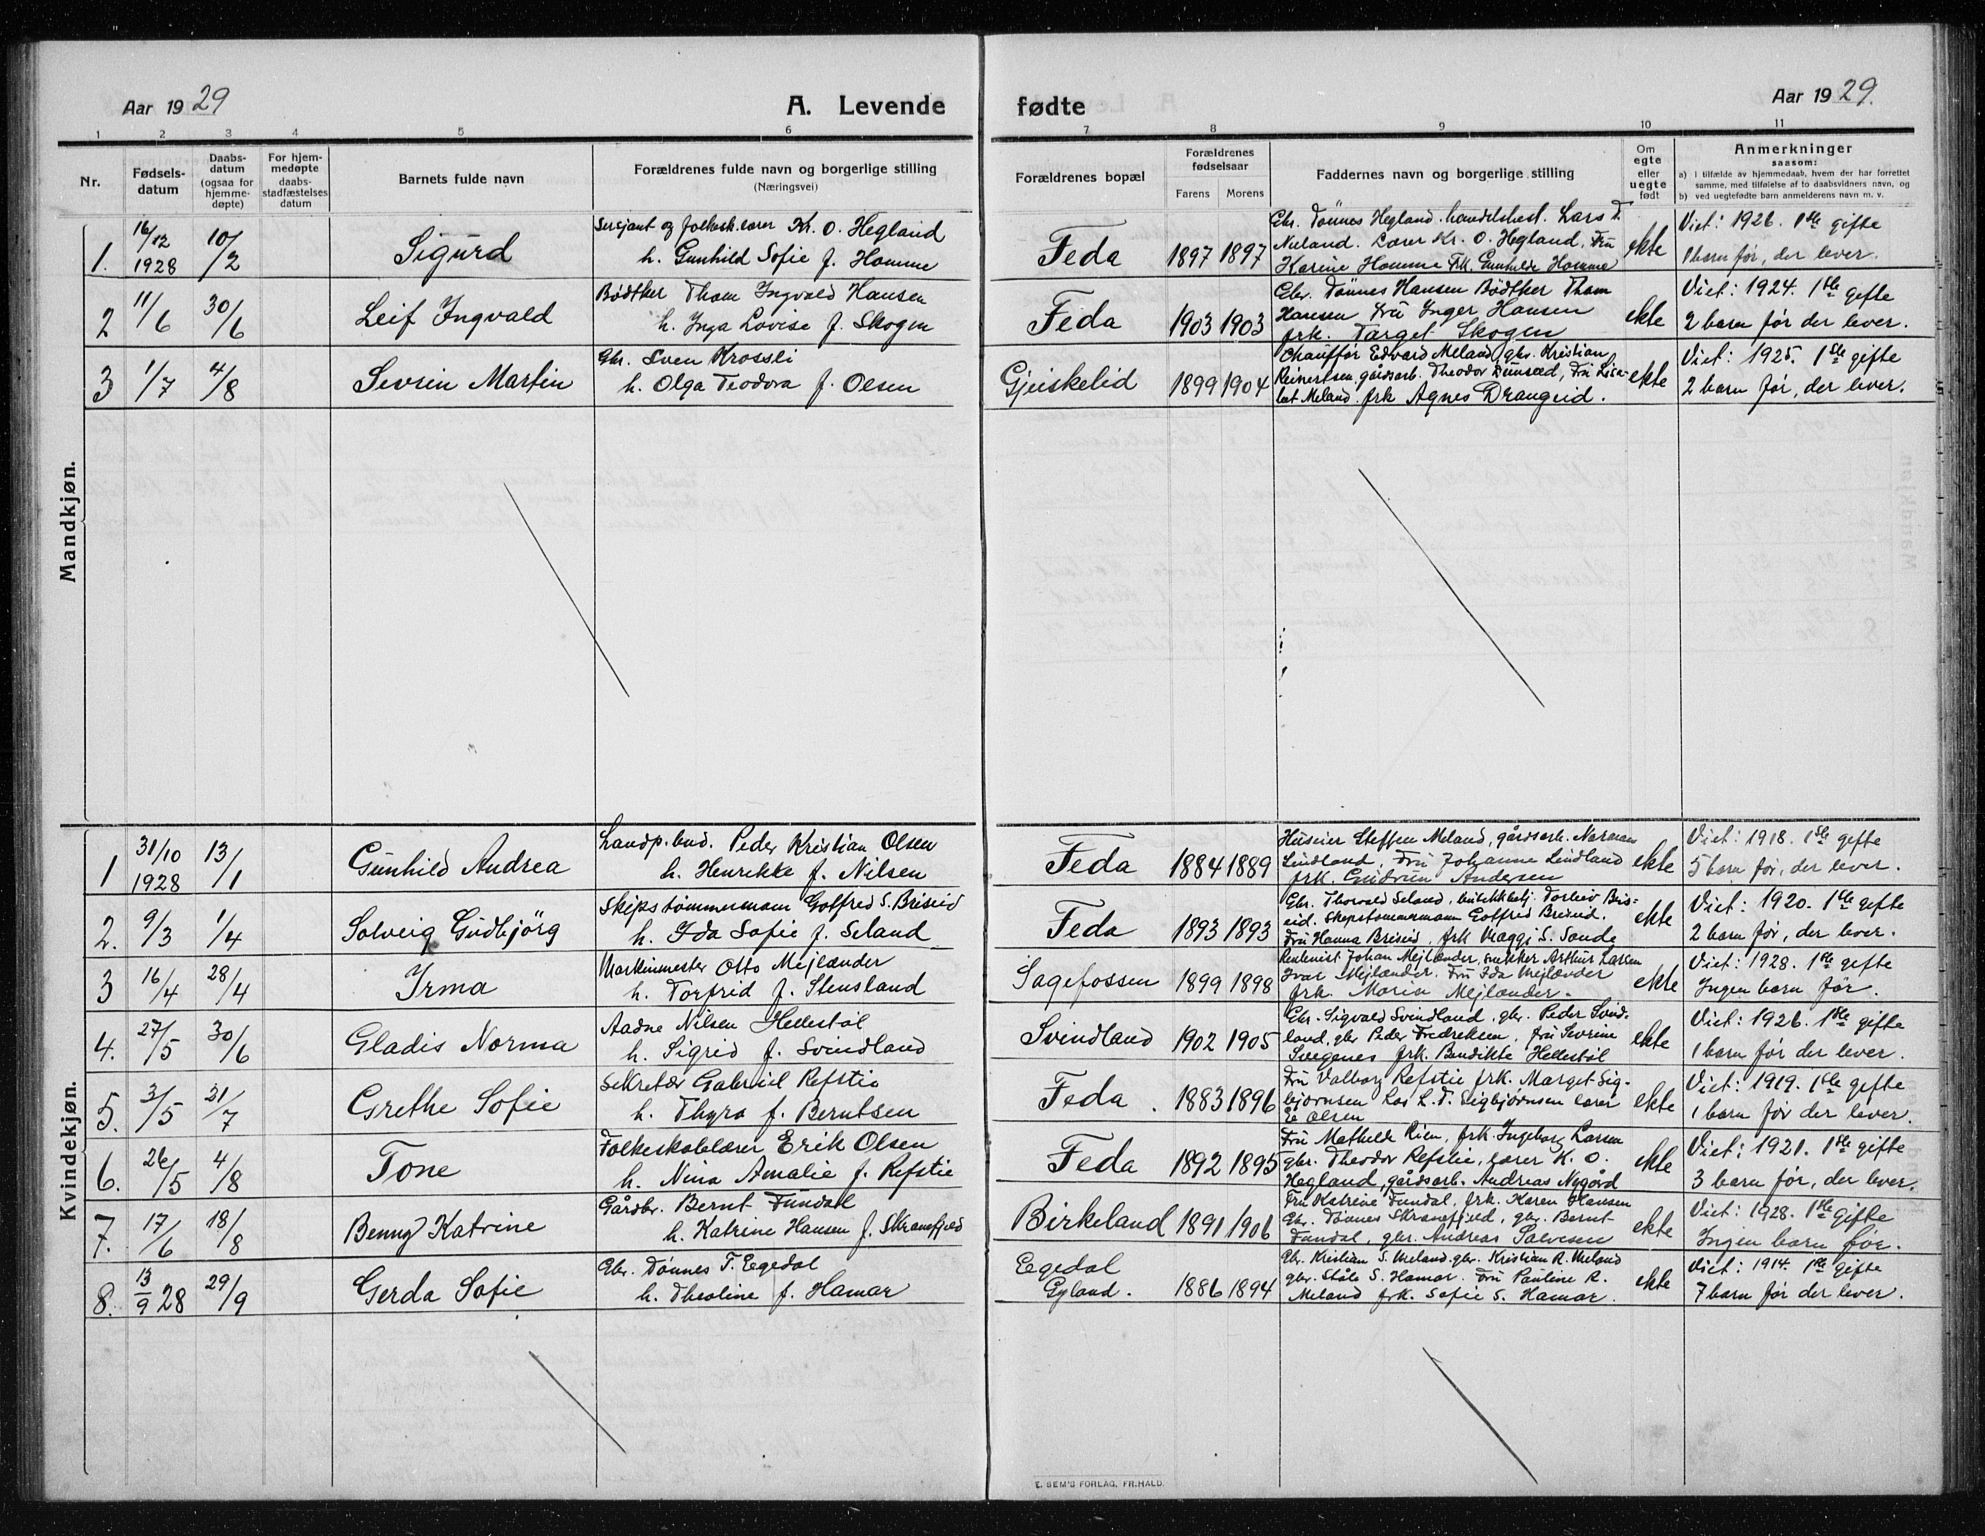 Aar 1929
A. Levende fødte
Aar 1929.
1 2 3 4 5 6 7 8 9 10 11
Nr.
Fødsels-datum
Daabs-datum (ogsaa for hjemme-døpte)
For hjem-medøpte daabs-stadfæstelses datum
Barnets fulde navn
Forældrenes fulde navn og borgerlige stilling (Næringsvei)
Forældrenes bopæl
Forældrenes fødselsaar
Farens Morens
Faddernes navn og borgerlige stilling
Om egte eller uegte født
Anmerkninger
saasom:
a) i tilfælde av hjemmedaab, hvem der har forrettet samme, med tilføielse av to daabsvidners navn, og
b) ved uegtefødte barn anmelderens navn m. v.
Mandkjøn.
1. 16/12 1928 10/2 Sigurd
Sersjant og folkesk.lærer Kr. O. Hegland
h. Gunhild Sofie f. Homme
Feda 1897 1897
Gbr. Tønnes Hegland. handelsbest. Lars T.
Nieland. Lærer Kr. O. Hegland, Fru
Karine Homme Frk. Gunhilde Homme
ekte
Viet: 1926. 1ste gifte
1 barn før, der lever.
2 11/6 30/6 Leif Ingvald
Bødtker Thom Ingvald Hansen
h. Inga Lovise f. Skogen
Feda 1903 1903
Gbr. Tønnes Hansen Bødtker Thom
Hansen Fru Inger Hansen
frk. Target Skogen
ekte
Viet: 1924. 1ste gifte
2 barn før der lever.
3 1/7 4/8 Sevrin Martin
Gbr. Sven Krossli
h. Olga Teodora f. Olsen
Gjeiskelid 1899 1904
Chauffør Edvard Meland, gbr. Kristian
Reinertsen, gårdsarb. Theodor Funsæd, Fru Lisa-
bet Meland. frk Agnes Drangeid.
ekte
Viet: 1925. 1ste gifte
2 barn før, der lever.
Kvindekjøn.
1 31/10 1928 13/1 Gunhild Andrea
Landp.bud. Peder Kristian Olsen
h. Henrikke f. Nilsen
Feda 1884 1889
Huseier Steffen Meland, gårdsarb. Norman
Lindland, Fru Johanne Lindland
frk. Gudrun Andersen
ekte
Viet: 1918. 1ste gifte
5 barn før, der lever.
2. 9/3 1/4 Solveig Gudbjörg
Skipstømmermann Golfred S. Briseid
h. Ida Sofie f. Seland
Feda 1893 1893
Gbr. Thorvald Seland, butikkbetj. Torleiv Bris-
eid. Skipstømmermann Golfred Briseid.
Fru Hanna Briseid, frk Maggi S. Sande
ekte
Viet: 1920. 1ste gifte
2 barn før, der lever.
3 16/4 28/4 Irma
Maskinmester Otto Mejlænder
h. Torfrid f. Stensland
Sagefossen 1899 1898
Johan Mejlænder, snekker Arthur Larsen
Ivar Mejlænder. Fru Ida Mejlænder
frk. Maria Mejlænder.
ekte
Viet: 1928. 1ste gifte
Ingen barn før.
4. 27/5 30/6 Gladis Norma
Aadne Nilsen Hellestøl
h. Sigrid f. Svindland
Svindland 1902 1905
Gbr. Sigvald Svindland, gbr. Peder Svind-
land, gbr Peder Fredreksen, fru Sevrine
frk. Bendikte Hellestøl
ekte
Viet: 1926. 1ste gifte
1 barn før der lever.
5. 3/5 21/7 Grethe Sofie
Sekretær Gabriel Refstie
h. Thyra f. Berntsen
Feda. 1883 1896
Fru Valborg Refstie frk. Marget Sig-
bjørnsen Los L. T. Sigbjørnsen lærer
E Olsen
ekte
Viet: 1919. 1ste gifte
1 barn før der lever.
6. 26/5 4/8 Tone
Folkeskolelærer Erik Olsen
h. Nina Amalie f. Refstie
Feda 1892 1895
Fru Mathilde Rien, frk. Ingeborg Larsen
gbr. Theodor Refstie, lærer K. O.
Hegland, gårdsarb. Andreas Nygård
ekte
Viet: 1921. 1ste gifte
3 barn før, der lever.
7. 17/6 18/8 Benny Katrine
Gårdbr. Bernt Fundal
h. Katrine Hansen f. Skranefjeld
Birkeland 1891 1906
Fru Katrine Fundal, frk. Karen Hansen
Gbr. Tønnes Skranefjeld, gbr. Bernt
Fundal, gbr. Andreas Salvesen
ekte
Viet: 1928. 1ste gifte
Ingen barn før.
8. 13/9 28 29/9 Gerda Sofie
Gbr. Tønnes T. Egedal
h. Theoline f. Hamar
Egedal
Gyland. 1886 1894
Gbr. Kristian S. Meland gbr. Kristian R. Meland
gbr. Ståle S. Hamar. Fru Pauline R.
Meland frk. Sofie S. Hamar.
ekte
Viet: 1914. 1ste gifte
7 barn før der lever.
E. SEM'S FORLAG, FR.HALD.